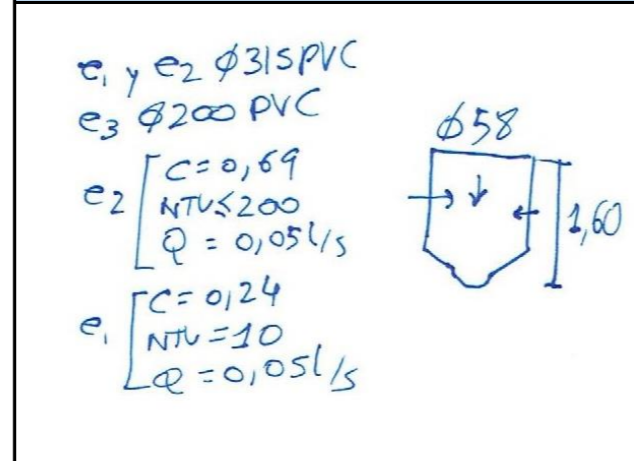 e1 y e2 φ315PVC
e3 φ200 PVC
φ58
e2
C=0,69
NTU≤200
Q=0,05l/s
1,60
e1
C=0,24
NTU=10
Q=0,05l/s